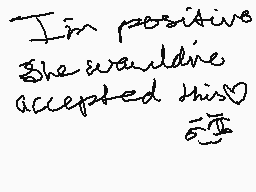 I'm positive
she would've
accepted this♡